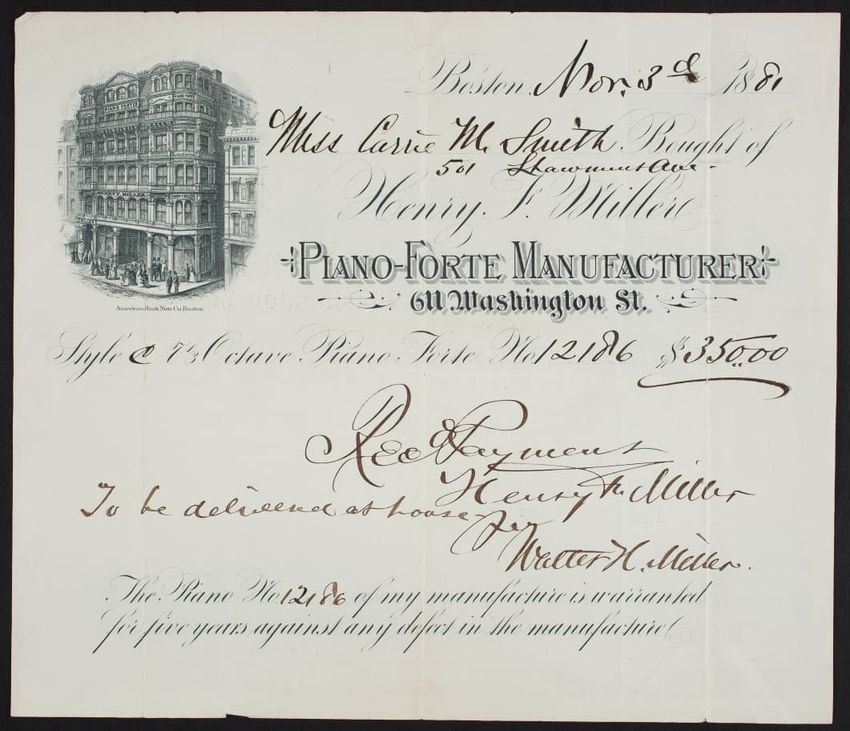 Boston, Nov. 3d 1881
Miss Carrie M. Smith Bought of
501 Shawmut Ave.
Henry F. Miller
PIANO-FORTE MANUFACTURER
611 Washington St.
American Bank Note Co. Boston
Style C 7⅓ Octave Piano Forte No. 12186 $350.00
Recd Payment
Henry F. Miller
To be delivered at house
per
Walter H. Miller.
The Piano No. 12186 of my manufacture is warranted
for five years against any defect in the manufacture